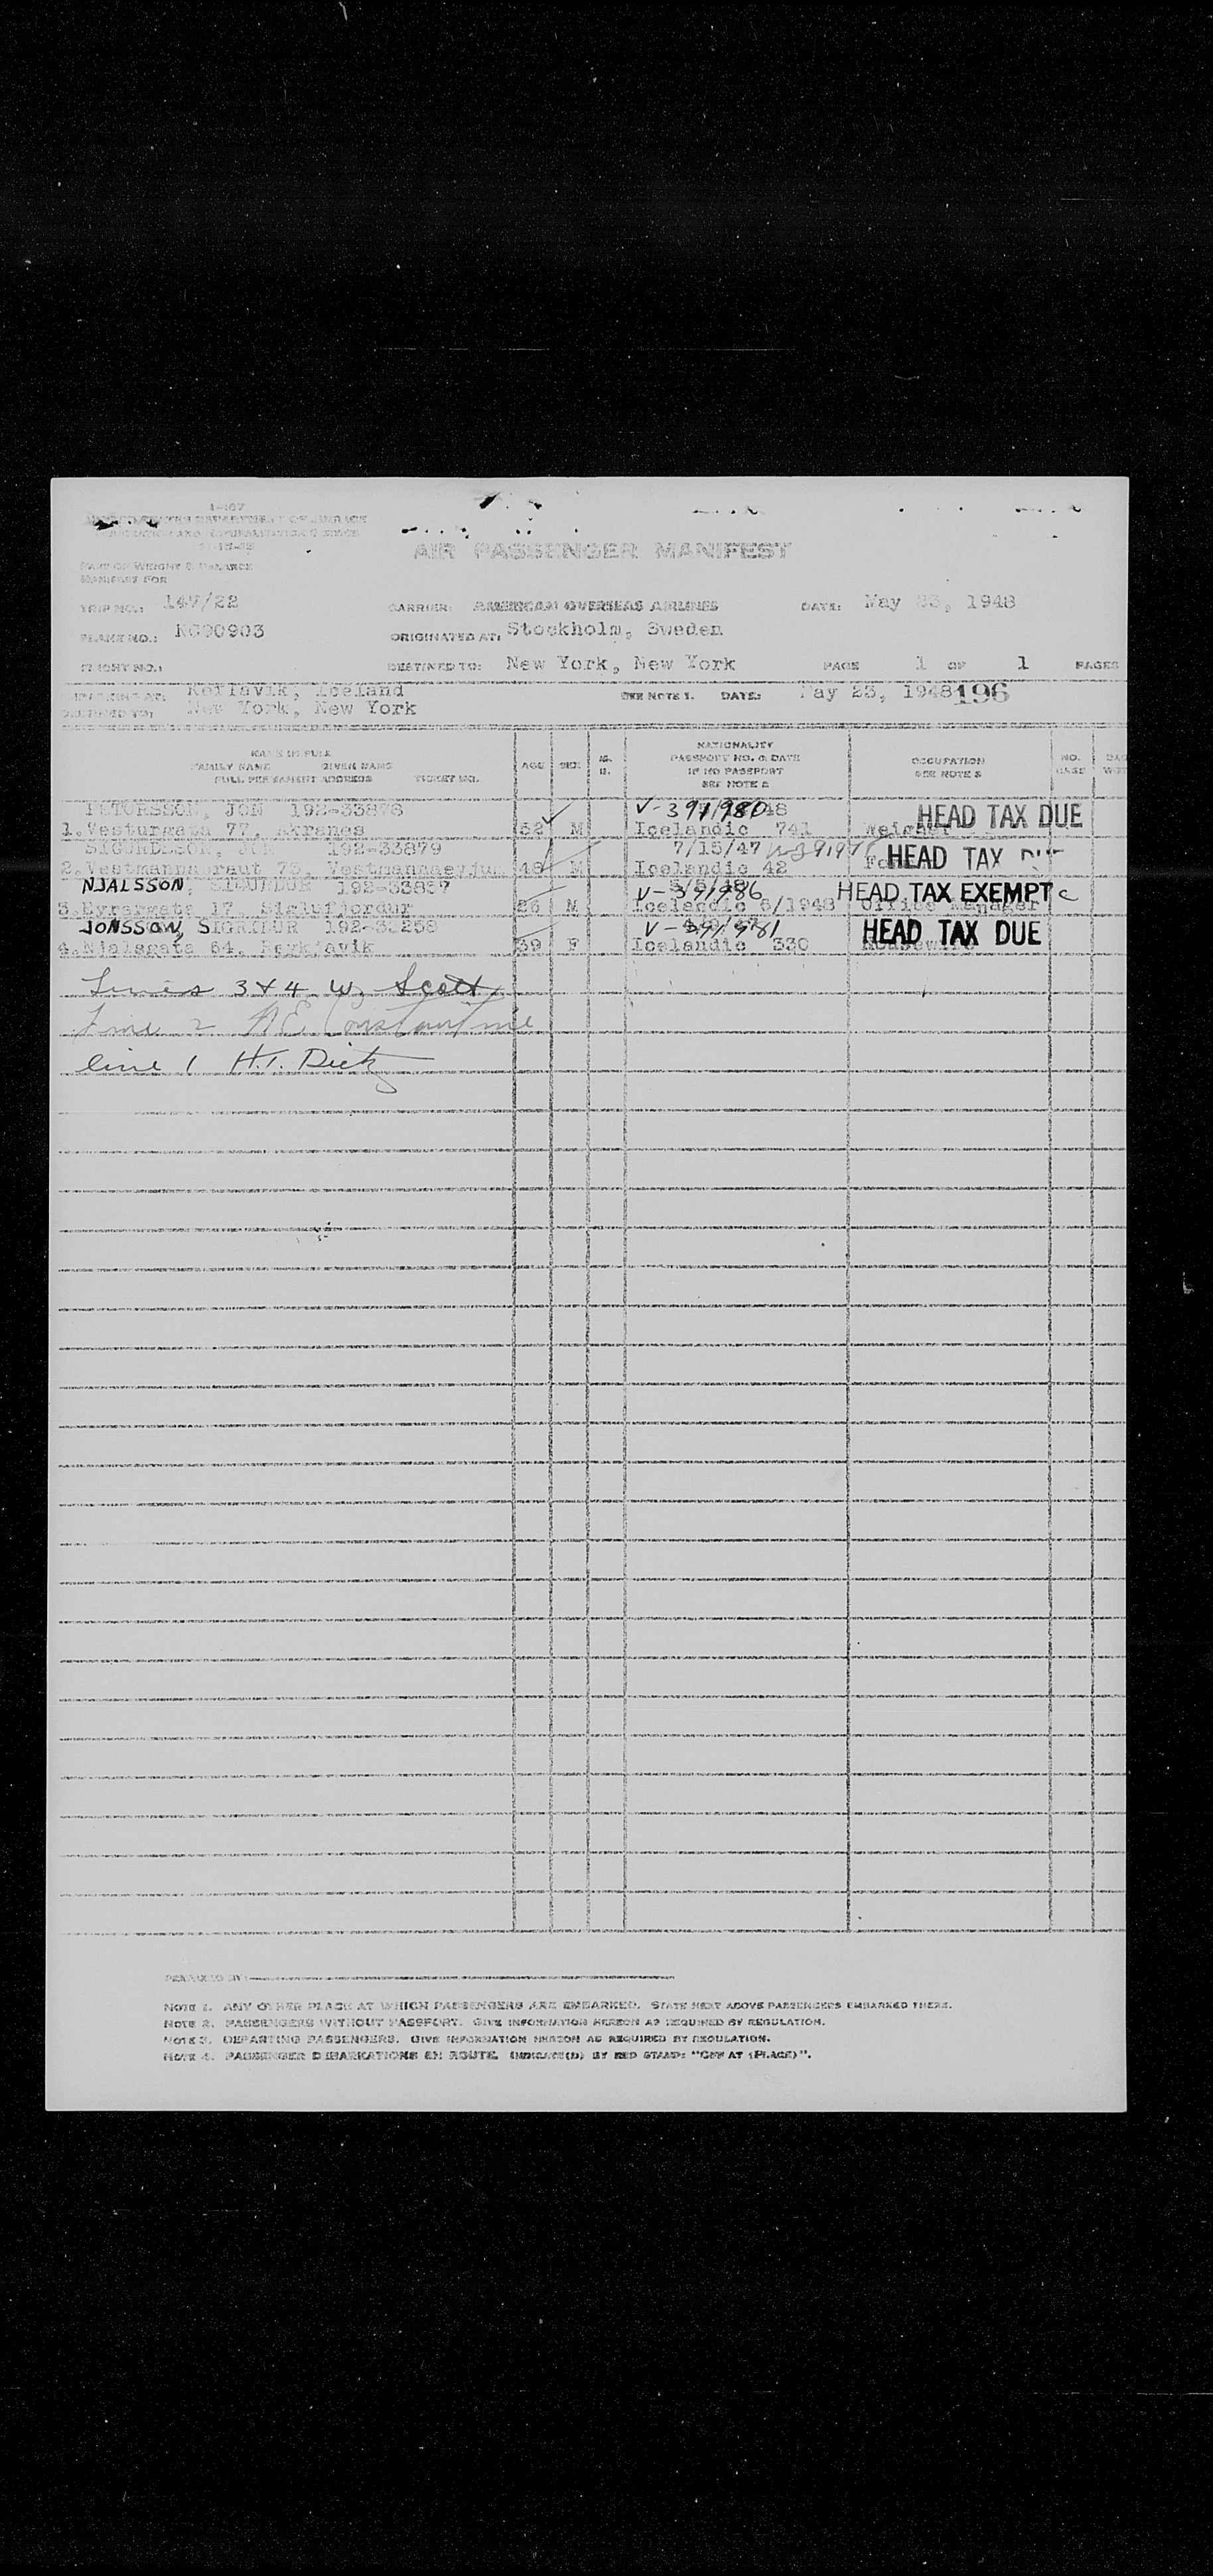 I-407
UNITED STATES DEPARTMENT OF JUSTICE
IMMIGRATION AND NATURALIZATION SERVICE
AIR PASSENGER MANIFEST
PART OF WEIGHT & BALANCE
MANIFEST FOR
TRIP NO.: 147/22 CARRIER: AMERICAN OVERSEAS AIRLINES DATE: May 23, 1948
PLANE NO.: NC90903 ORIGINATED AT: Stockholm, Sweden
FLIGHT NO.: DESTINED TO: New York, New York PAGE 1 OF 1 PAGES
EMBARKING AT: Keflavik, Iceland SEE NOTE 1. DATE: May 23, 1948 196
DESTINED TO: New York, New York
NAME IN FULL
FAMILY NAME GIVEN NAME
FULL PERMANENT ADDRESS TICKET NO.
AGE SEX
NATIONALITY
PASSPORT NO. & DATE
IF NO PASSPORT
SEE NOTE 2
OCCUPATION
SEE NOTE 3
NO.
PETURSSON, JON 192-33878 V-391980 HEAD TAX DUE
1. Vesturgata 77, Akranes 52 M Icelandic 741
SIGURDSSON, 192-33879 7/15/47 HEAD TAX
2. Vestmannabraut 73, Vestmannaeyjum 48 M Icelandic 42
NJALSSON, SIGURDUR 192-33857 V-391986 HEAD TAX EXEMPT C
3. Eyrargata 17, Siglufjordur 26 M Icelandic 6/1948 Office Manager
JONSSON, SIGRIDUR 192-33258 V-391981 HEAD TAX DUE
4. Njalsgata 64, Reykjavik 39 F Icelandic 330 Housewife
Lines 3 & 4 W. Scott
Line 2 Constantine
line 1 H.T. Dietz
PREPARED BY
NOTE 1. ANY OTHER PLACE AT WHICH PASSENGERS ARE EMBARKED. STATE NEXT ABOVE PASSENGERS EMBARKED THERE.
NOTE 2. PASSENGERS WITHOUT PASSPORT. GIVE INFORMATION HEREON AS REQUIRED BY REGULATION.
NOTE 3. DEPARTING PASSENGERS. GIVE INFORMATION HEREON AS REQUIRED BY REGULATION.
NOTE 4. PASSENGER DEBARKATIONS EN ROUTE. INDICATE(D) BY RED STAMP: "OFF AT (PLACE)".